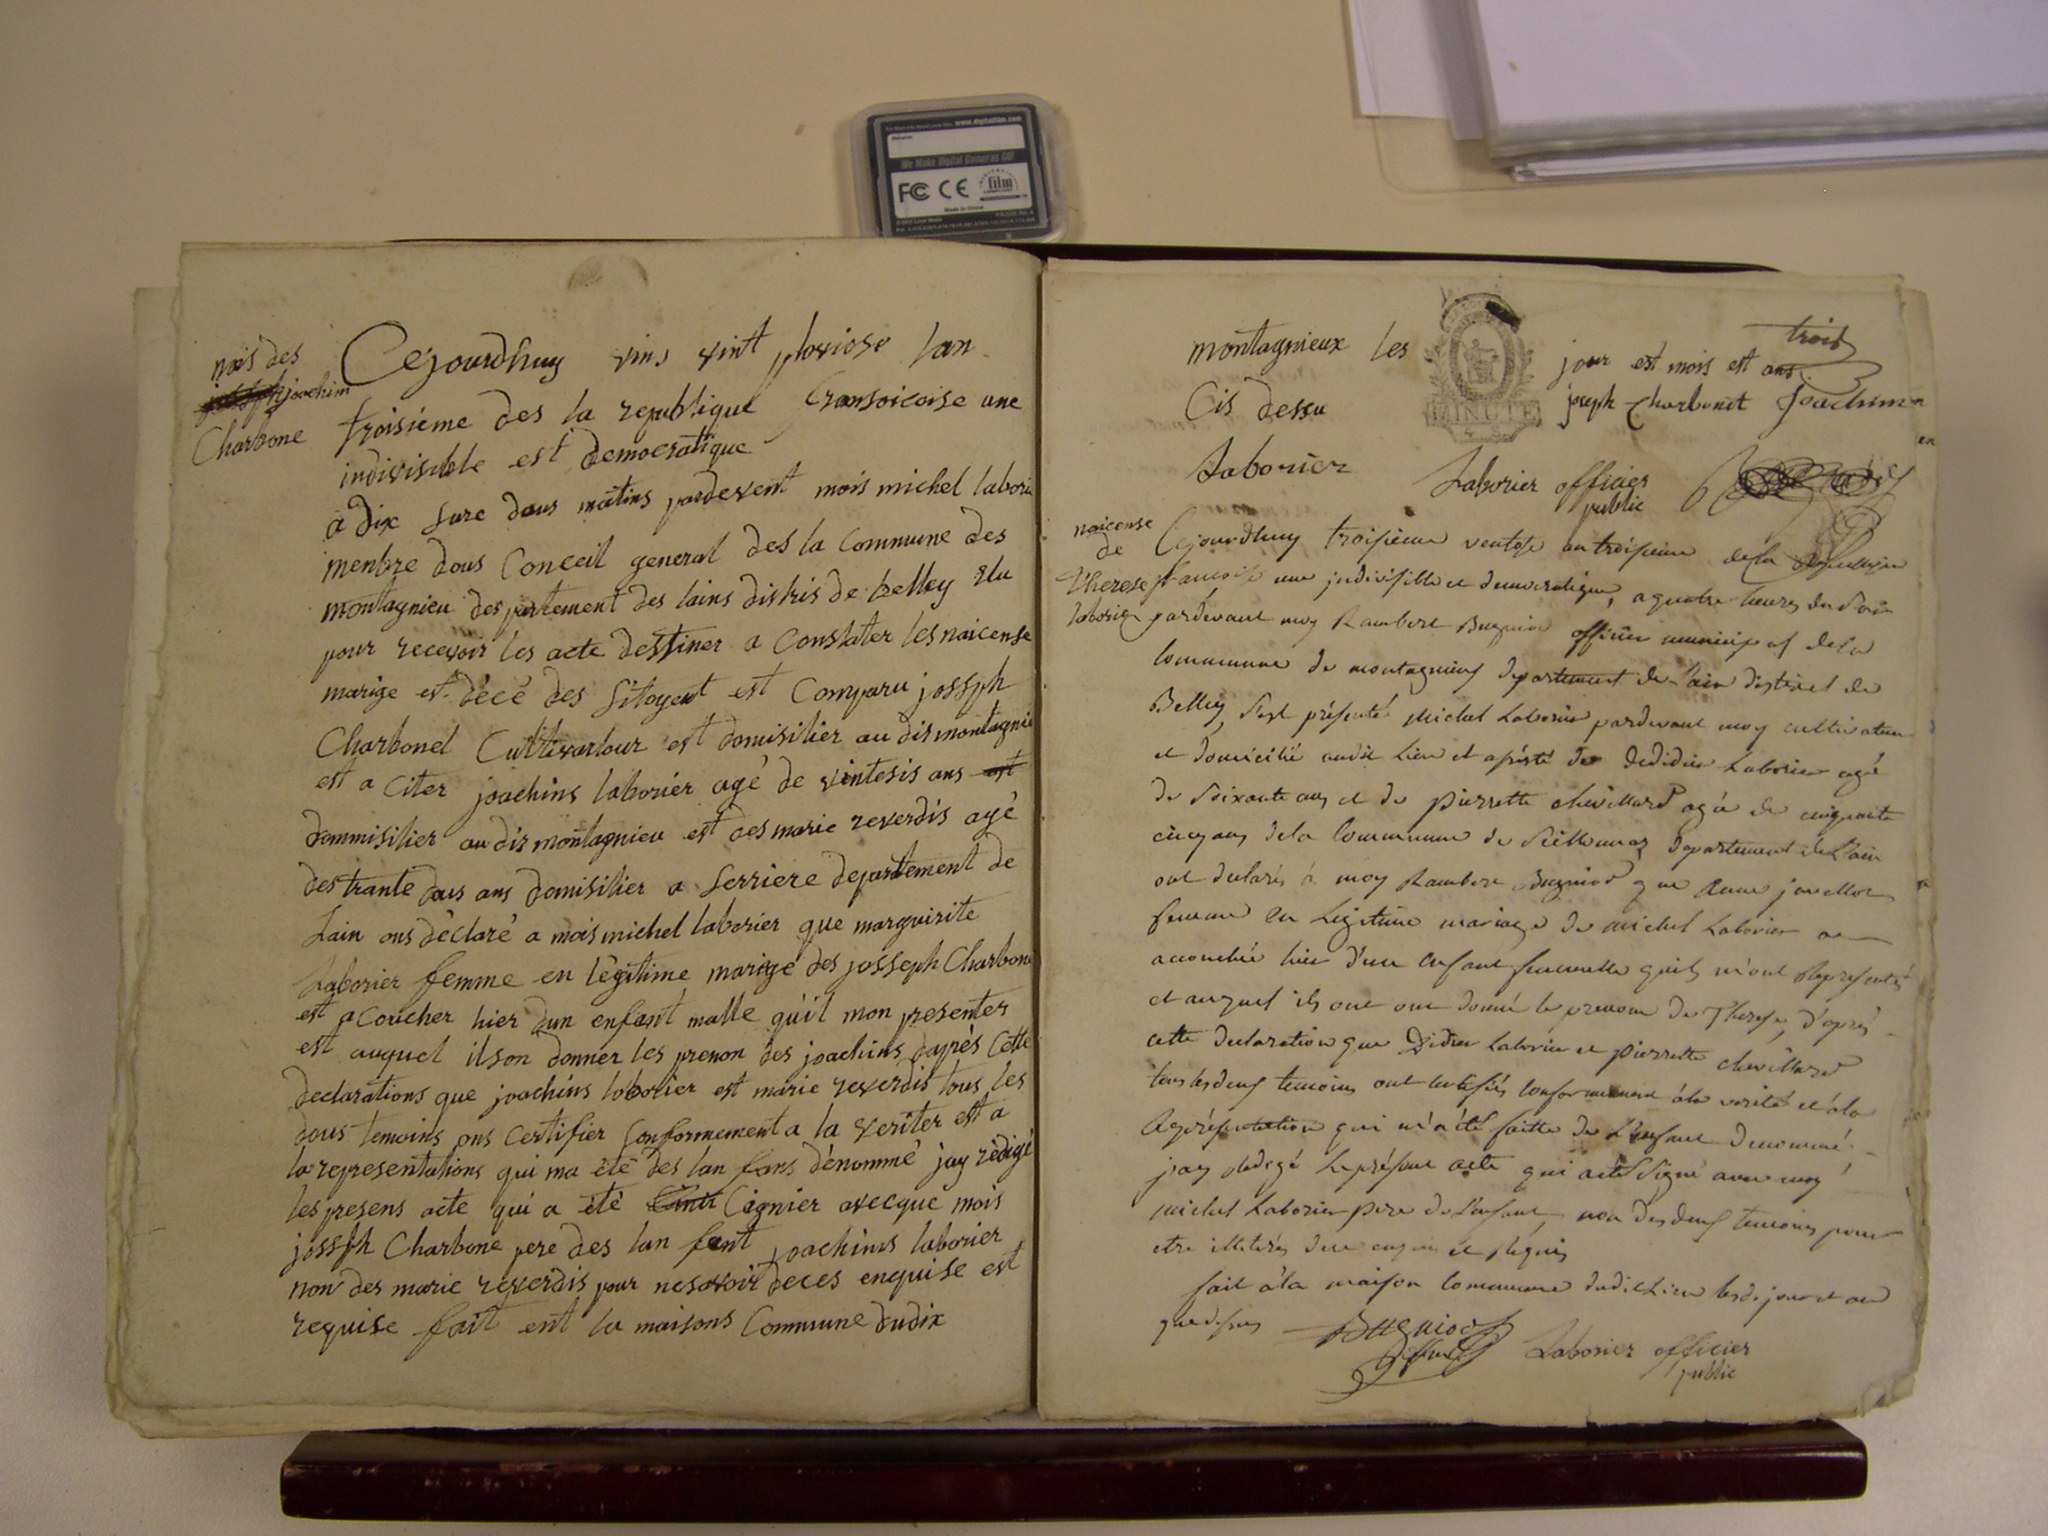 www.digitalfilm.com
We Make Digital Cameras GO!
FC CE film
Made in China
nais des
joachim
Charbone
Cejourdhuy vins vint ploviose lan
troisiéme des la republique fransoicoise une
indivisible est democratique
a dix sure dous matins pardevent mois michel laborie
menbre dous Conceil general des la Commune des
montagnieu despartement des lains distris de belley élu
pour recevoir les acte destiner a Constater les naicense
marige est décé des Sitoyent est Comparu josseph
Charbonel Cultivartour est domisilier au dis montagnie
est a Citer joachins laborier agé de vintesis ans est
dommisilier au dis montagnieu est des marie reverdis agé
des trante dous ans domisilier a Serriere departement de
Lain ons déclaré a mois michel laborier que marguirite
Laborier femme en légitime marige des josseph Charbone
est acoucher hier dun enfant malle quil mon presenter
est auquel ilson donner les prenon des joachins daprès Cette
declarations que joachins laborier est marie reverdis tous les
dous temoins ons Certifier Conformement a la veriter est a
la representations qui ma été des lan fans dénommé jay rédigé
les presens acte qui a été Cignier avecque mois
josseph Charbone pere des lan fant joachims laborier
non des marie reverdis pour nesavoir deces enquise est
requise fait ent la maisons Commune dudix
montagnieux les jour est mois est ans trois
Cis dessu joseph Charbonet Joachim
MINUTE
Laborier Laborier officier
public
naicense
de
Therese
laborier
Cejourdhuy troisieme ventose an troisieme de la
francoise une indivisible et democratique, a quatre heures du soir
pardevant moy Rambert Bugniod officier municipal de la
Commune de montagnieux departement de lain district de
Belley, sest présenté Michel Laborier pardevant moy cultivateur
et domicilié audit lieu et assisté de Dedidier Laborier agé
de soixante ans et de pierrette chevillard agée de cinquante
cinq ans de la Commune de Seillonnaz departement de Lain
ont declarés a moy Rambert Bugniod que
femme en Legitime mariage de michel Laborier a
accouchée hier d'un enfant femmelle quils m'ont Represente
et auquel ils ont ont donné le prenom de Therese, d'après
cette declaration que Didier Laborier et pierrette chevillard
tous les deux temoins ont certifiés conformement à la verité et à la
Représentation qui m'a été faitte de L'enfant denommé
jay Redigé le présent acte qui a été signé avec moy
michel Laborier pere de L'enfant, non des deux temoins pour
etre illiterés de ce enquis et Requis
fait à la maison Commune dudit Lieu les dis jour et an
que dessus Bugniod Laborier officier
public